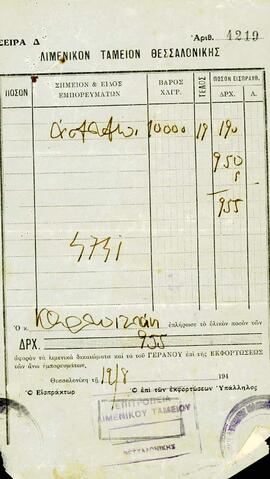 ΣΕΙΡΑ Δ
Ἀριθ. 4219
ΛΙΜΕΝΙΚΟΝ ΤΑΜΕΙΟΝ ΘΕΣΣΑΛΟΝΙΚΗΣ
ΠΟΣΟΝ
ΣΗΜΕΙΟΝ & ΕΙΔΟΣ ΕΜΠΟΡΕΥΜΑΤΩΝ
ΒΑΡΟΣ ΧΛΓΡ.
ΤΕΛΟΣ
ΠΟΣΟΝ ΕΙΣΠΡΑΧΘ.
ΔΡΧ. Λ.
10000 19 190
950
5
955
5731
Ὁ κ. ἐπλήρωσε τὸ ὁλικὸν ποσὸν τῶν
ΔΡΧ. 955
ἀφορῶν τὰ λιμενικὰ δικαιώματα καὶ τὰ τοῦ ΓΕΡΑΝΟΥ ἐπὶ τῆς ΕΚΦΟΡΤΩΣΕΩΣ
τῶν ἄνω ἐμπορευμάτων.
Θεσσαλονίκη τῇ 19/8 194
Ὁ Εἰσπράκτωρ
Ὁ ἐπὶ τῶν ἐκφορτώσεων Ὑπάλληλος
ΕΠΙΤΡΟΠΕΙΑ
ΛΙΜΕΝΙΚΟΥ ΤΑΜΕΙΟΥ
ΘΕΣΣΑΛΟΝΙΚΗΣ